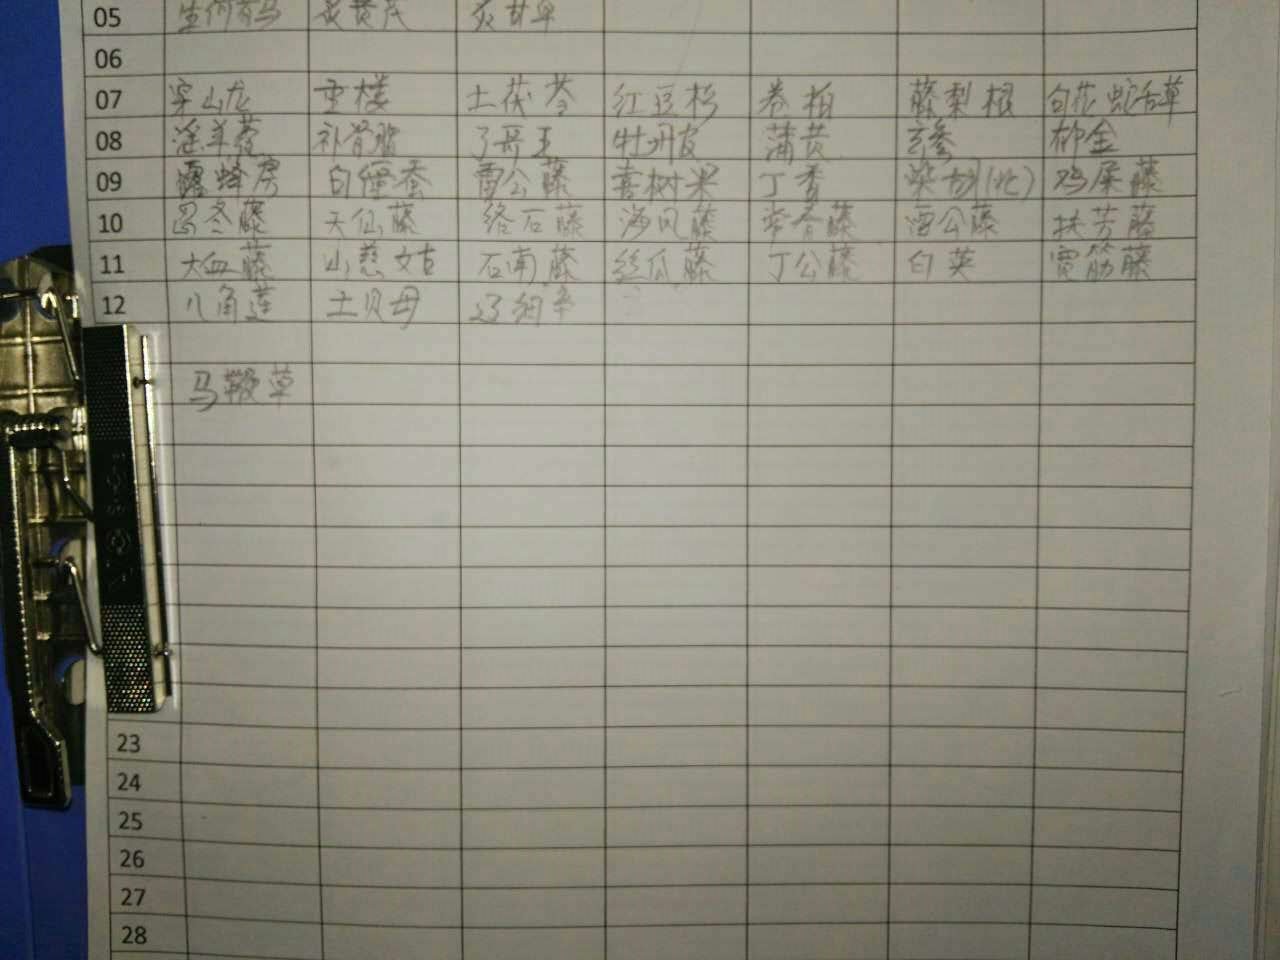 05 生何首乌 炙黄芪 炙甘草
06
07 穿山龙 重楼 土茯苓 红豆杉 卷柏 藤梨根 白花蛇舌草
08 淫羊藿 补骨脂 了哥王 牡丹皮 蒲黄 玄参 郁金
09 露蜂房 白僵蚕 雷公藤 喜树果 丁香 柴胡(北) 鸡屎藤
10 忍冬藤 天仙藤 络石藤 海风藤 常春藤 雷公藤 扶芳藤
11 大血藤 山慈姑 石南藤 丝瓜藤 丁公藤 白英 宽筋藤
12 八角莲 土贝母 辽细辛
马鞭草
23
24
25
26
27
28